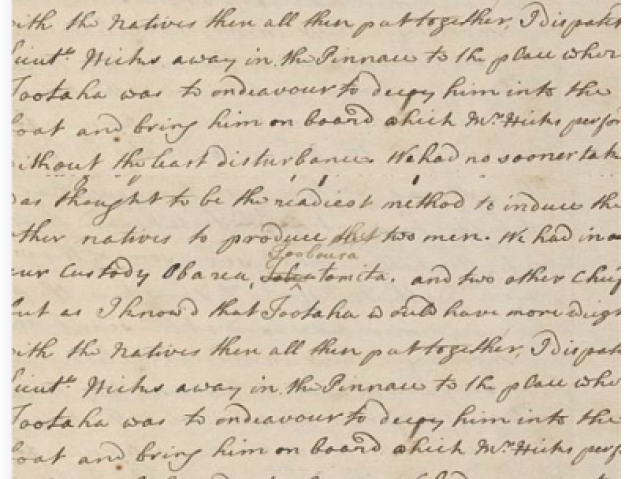 ith the natives then all then put together, I dispatc
Lieut.t Hicks away in the Pinnace to the place wher
Tootaha was to endeavour to decoy him into the
boat and bring him on board which Mr. Hicks perfor
ithout the least disturbance. We had no sooner tak
as thought to be the readiest method to induce the
ther natives to produce two men. We had in
our Custody Obarea, Tooboura tomita, and two other Chief
but as I know'd that Tootaha would have more weigh
ith the natives then all then put together, I dispatc
Lieut.t Hicks away in the Pinnace to the place wher
Tootaha was to endeavour to decoy him into the
boat and bring him on board which Mr. Hicks perfo